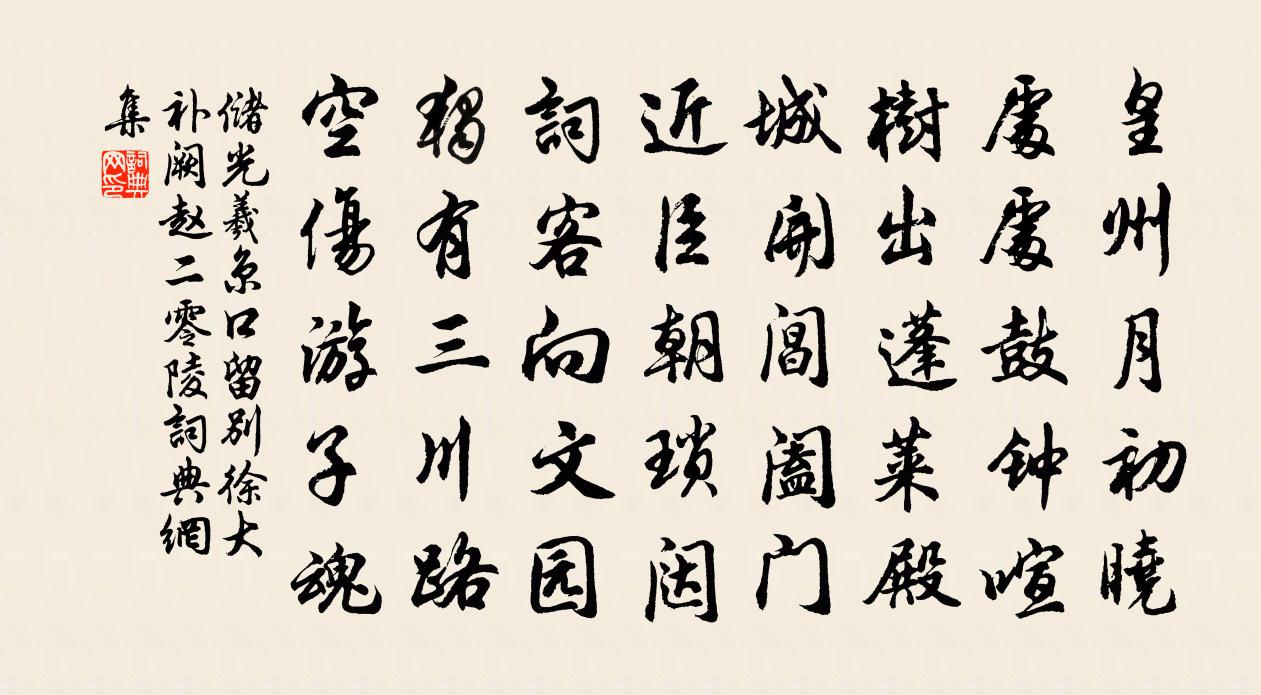 皇州月初曉
處處鼓钟喧
樹出蓬萊殿
城開閶阖门
近臣朝瑣闼
詞客向文园
獨有三川路
空傷游子魂
儲光羲京口留別徐大
补阙赵二零陵詞典網
集
詞典网印